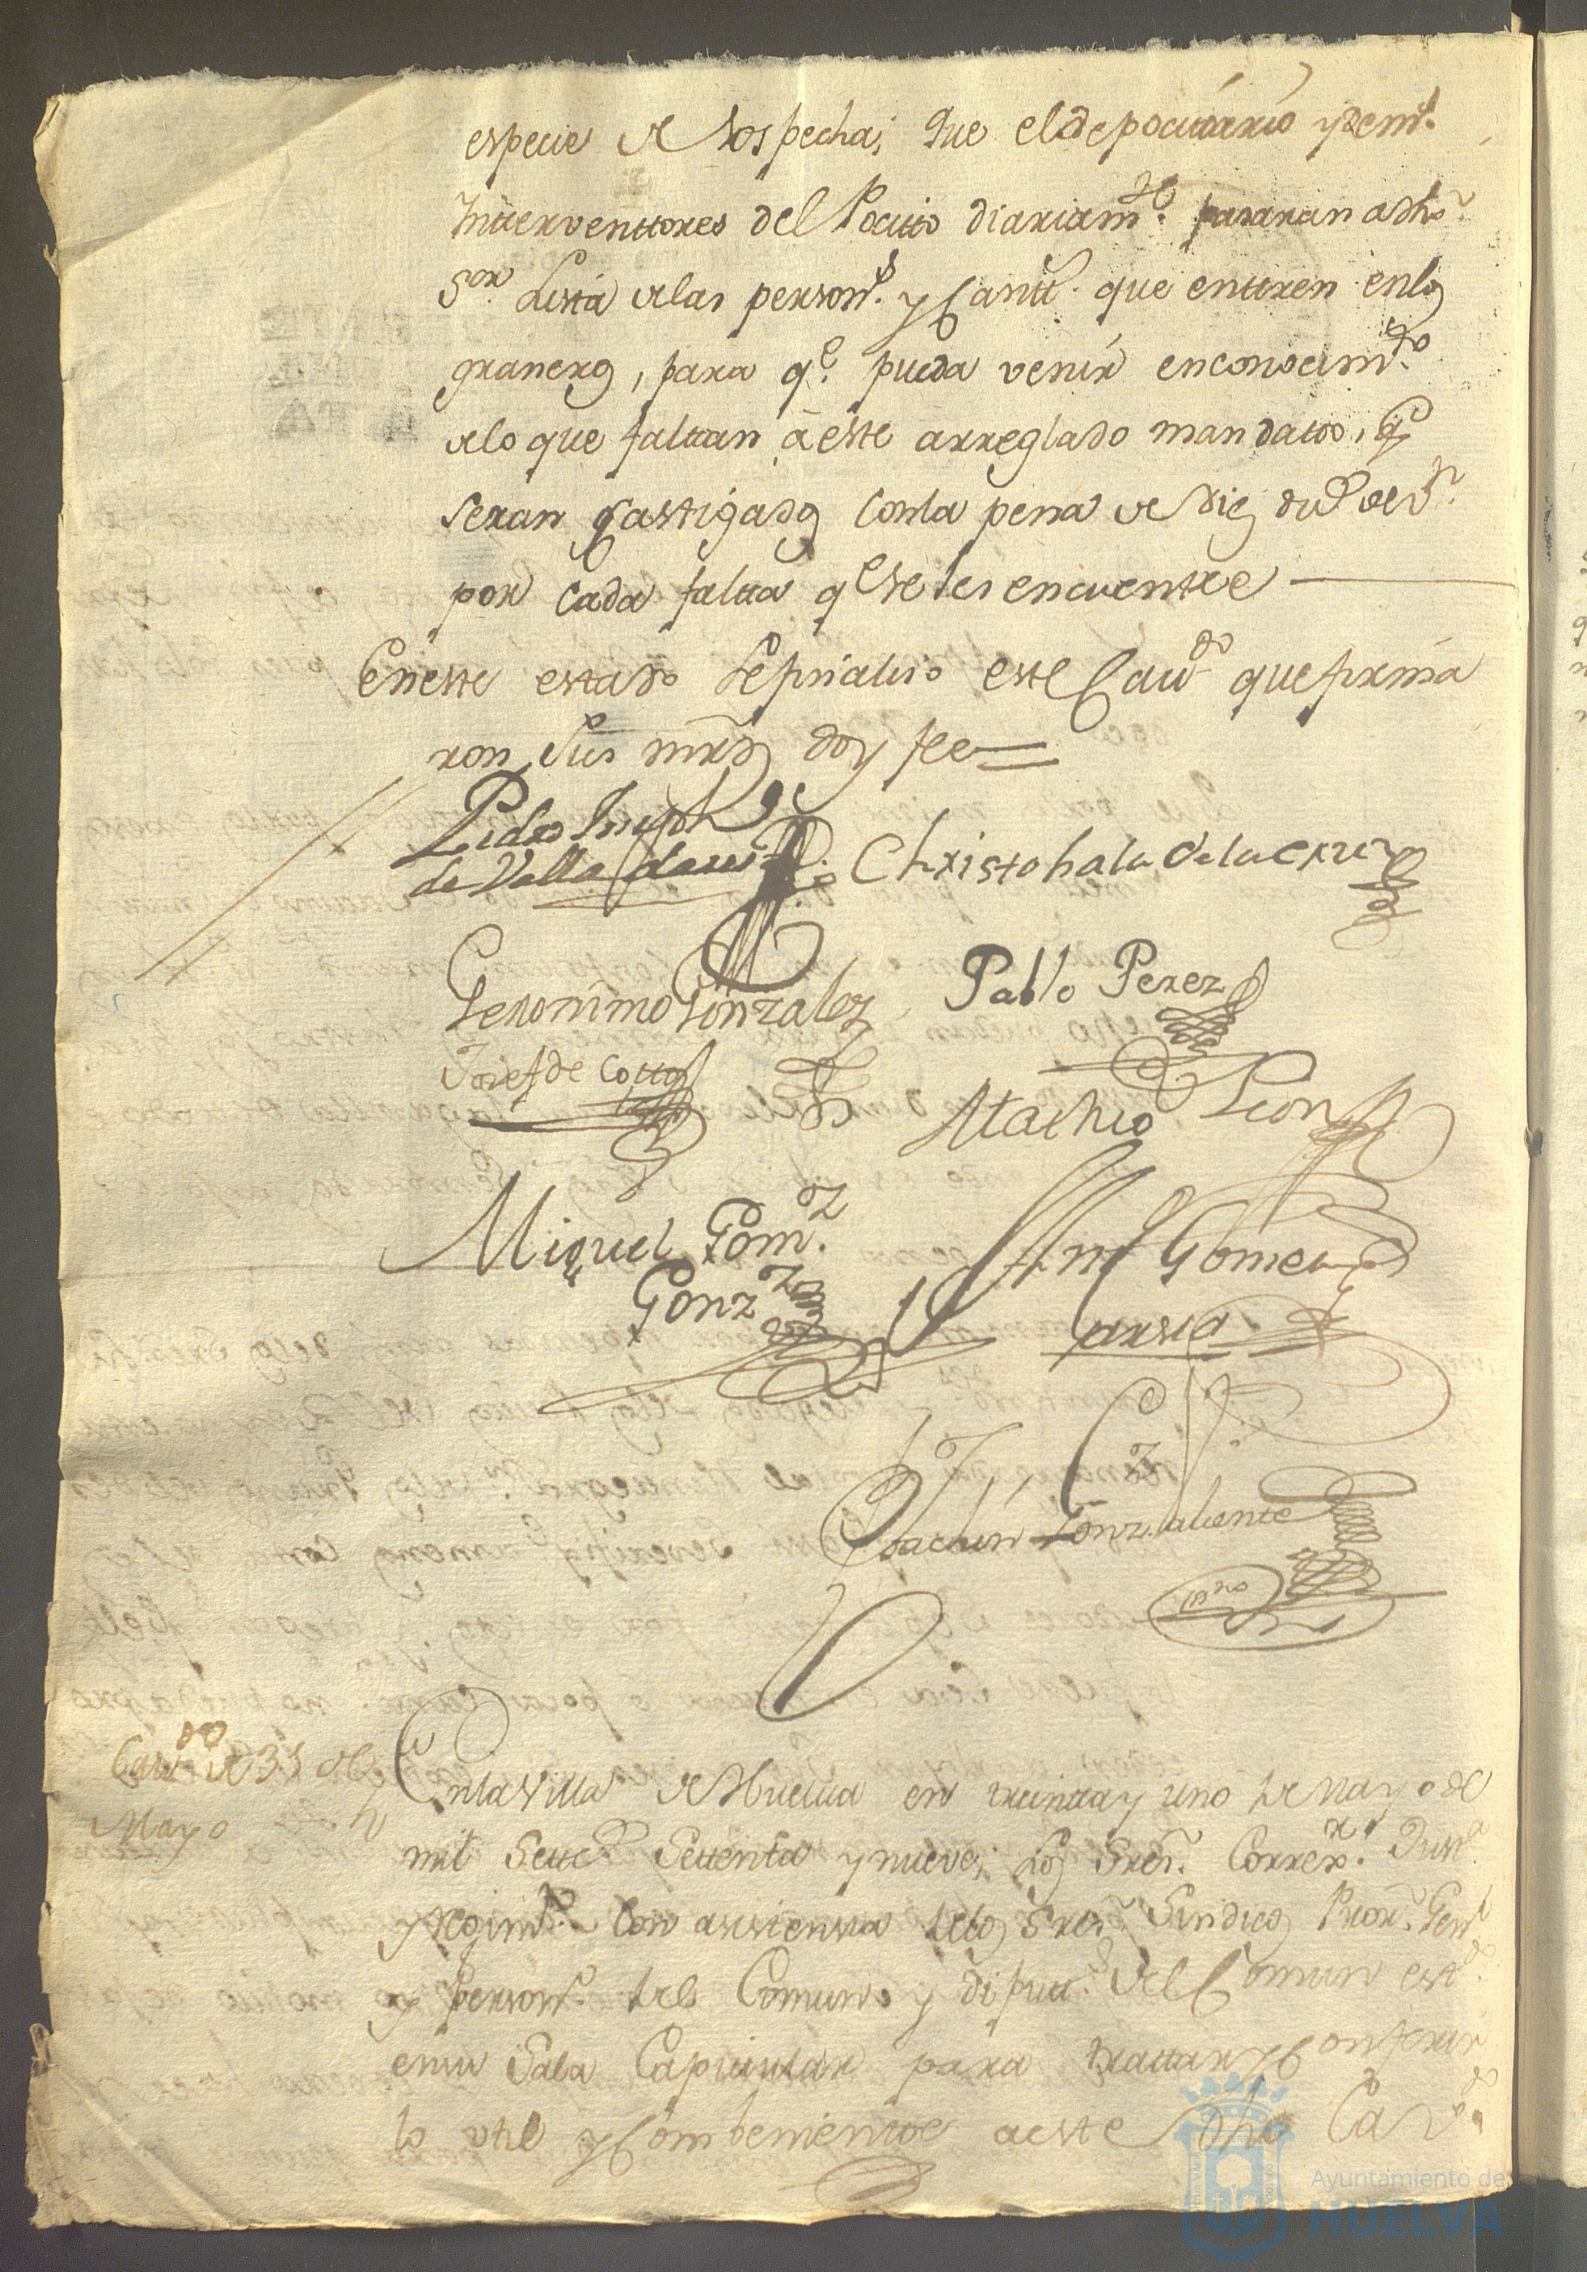 especie de sospecha; que el depocitario y dem.s
Intterventtores del Pocitto diariam.te pasaran a dho
S.or Lista de las person.s y Cantt.s que enttren en los
graneros, para q.e pueda venir en conosim.to
de lo que faltan a este arreglado mandatto, q.e
seran castigados con la pena de diez du.s de v.n
por cada faltta q.e se les encuentre
En este estado se finalisó este Cav.do que firma
ron sus mrds doy fee
Pedro
de Christobal de la Cruz
Geronimo Gonzalez Pablo Perez
Josef de Cotto
Leon
Miguel Gom.z
Gonz.z
Gomez
Garsia
Joachin Gonz.z Valiente
es.no
Cav.do de 31 de
Mayo
En la Villa de Huelva en treinta y uno de Mayo de
mil Settec.s Settenta y nueve; Los Sres. Correx.r Just.a
y Regim.to con asistensia de los Sres. Sindicos Pror. Gen.l
y person.o del Comun y diputt.s del Comun est.do
en su Sala Capitular para trattar y Conferir
lo util y Combenientte a este dho Cav.do
Ayuntamiento de
HUELVA